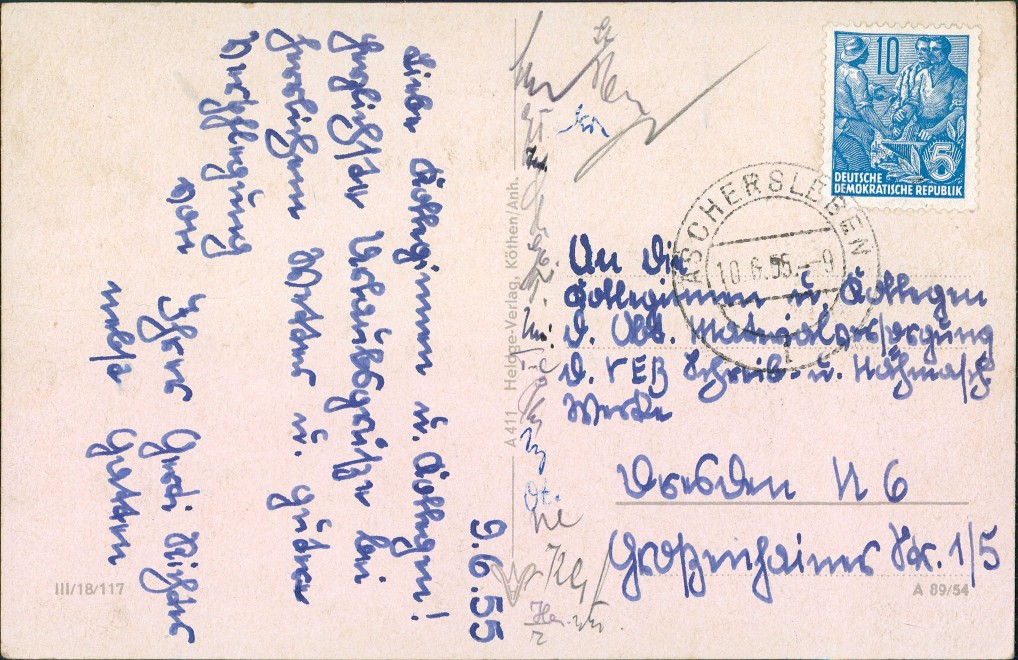 9.6.55
Liebe Kolleginnen u. Kollegen!
Herzlichste Urlaubsgrüße bei
herrlichem Wetter u. guter
Verpflegung
von
Ihrer Gerdi Richter
nebst Gatten
A 411 Heldge-Verlag, Köthen/Anh.
III/18/117
10
5
DEUTSCHE
DEMOKRATISCHE REPUBLIK
ASCHERSLEBEN
10.6.55.-9
1
An die
Kolleginnen u. Kollegen
d. Abt. Materialversorgung
d. VEB Schreib- u. Nähmasch.
Werke
Dresden N 6
Großenhainer Str. 1/5
A 89/54